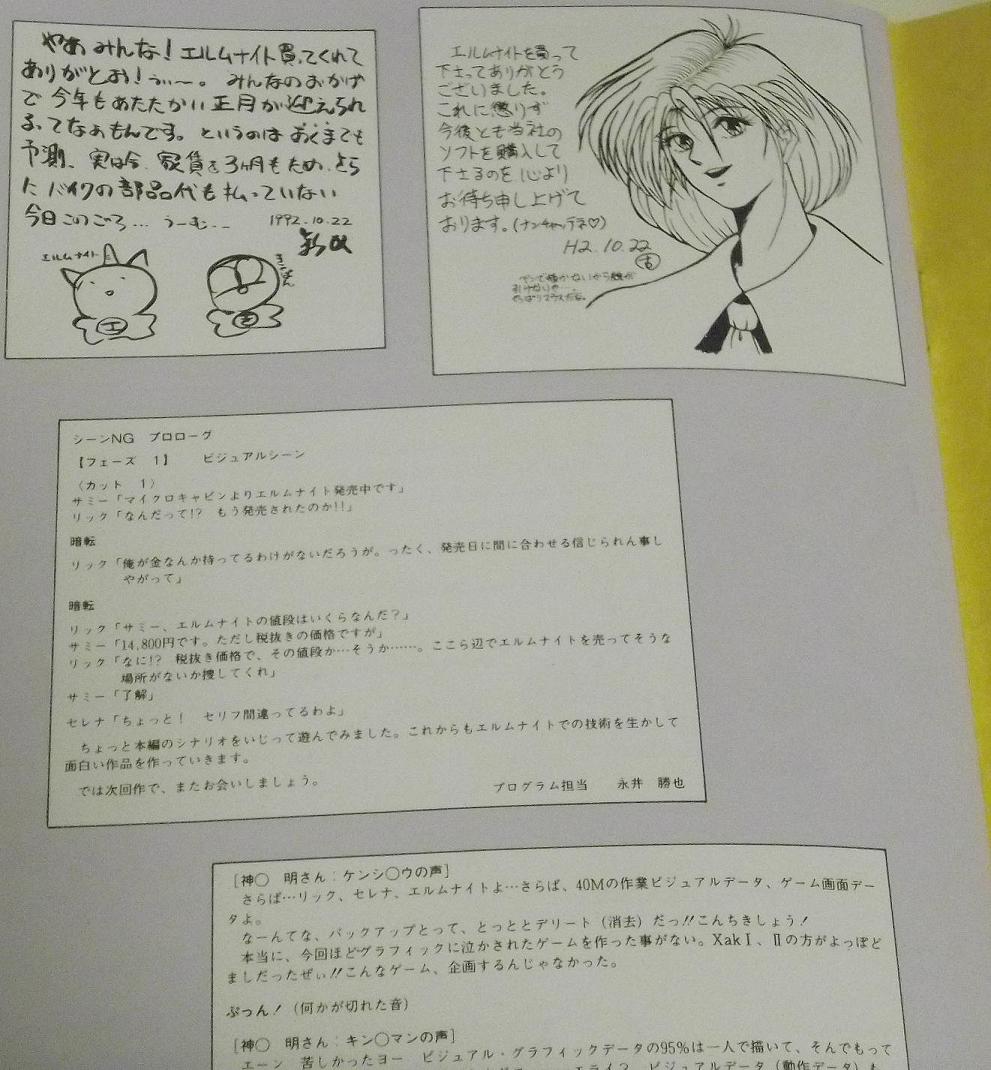 やあ みんな! エルムナイト買ってくれて
ありがとお! うぃ〜。 みんなのおかげ
で 今年もあたたかい正月が迎えられ
そうてなぁもんです。というのは おくまでも
予測、実は今、家賃を3ヶ月もため、さら
に バイクの部品代も払っていない
今日このごろ… うーむ… 1992.10.22
エルムナイト
エルムナイトを買って
下さってありがとう
ございました。
これに懲りず
今後とも当社の
ソフトを購入して
下さるのを心より
お待ち申し上げて
おります。(ナンチャッテネ♡)
H2.10.22
吉
ペンで描かないから線が
引けないや…。
やっぱりマウスだな。
シーンNG プロローグ
【フェーズ 1】 ビジュアルシーン
〈カット 1〉
サミー「マイクロキャビンよりエルムナイト発売中です」
リック「なんだって!? もう発売されたのか!!」
暗転
リック「俺が金なんか持ってるわけがないだろうが。ったく、発売日に間に合わせる信じられん事し
やがって」
暗転
リック「サミー、エルムナイトの値段はいくらなんだ?」
サミー「14,800円です。ただし税抜きの価格ですが」
リック「なに!? 税抜き価格で、その値段か…そうか……。ここら辺でエルムナイトを売ってそうな
場所がないか捜してくれ」
サミー「了解」
セレナ「ちょっと! セリフ間違ってるわよ」
ちょっと本編のシナリオをいじって遊んでみました。これからもエルムナイトでの技術を生かして
面白い作品を作っていきます。
では次回作で、またお会いしましょう。
プログラム担当 永井 勝也
[神〇 明さん:ケンシ〇ウの声]
さらば…リック、セレナ、エルムナイトよ…さらば、40Mの作業ビジュアルデータ、ゲーム画面デー
タよ。
なーんてな、バックアップとって、とっととデリート(消去)だっ!!こんちきしょう!
本当に、今回ほどグラフィックに泣かされたゲームを作った事がない。XakⅠ、Ⅱの方がよっぽど
ましだったぜぃ!!こんなゲーム、企画するんじゃなかった。
ぷっん!(何かが切れた音)
[神〇 明さん:キン〇マンの声]
エーン 苦しかったヨー ビジュアル・グラフィックデータの95%は一人で描いて、そんでもって
ビジュアルデータ(動作データ)も